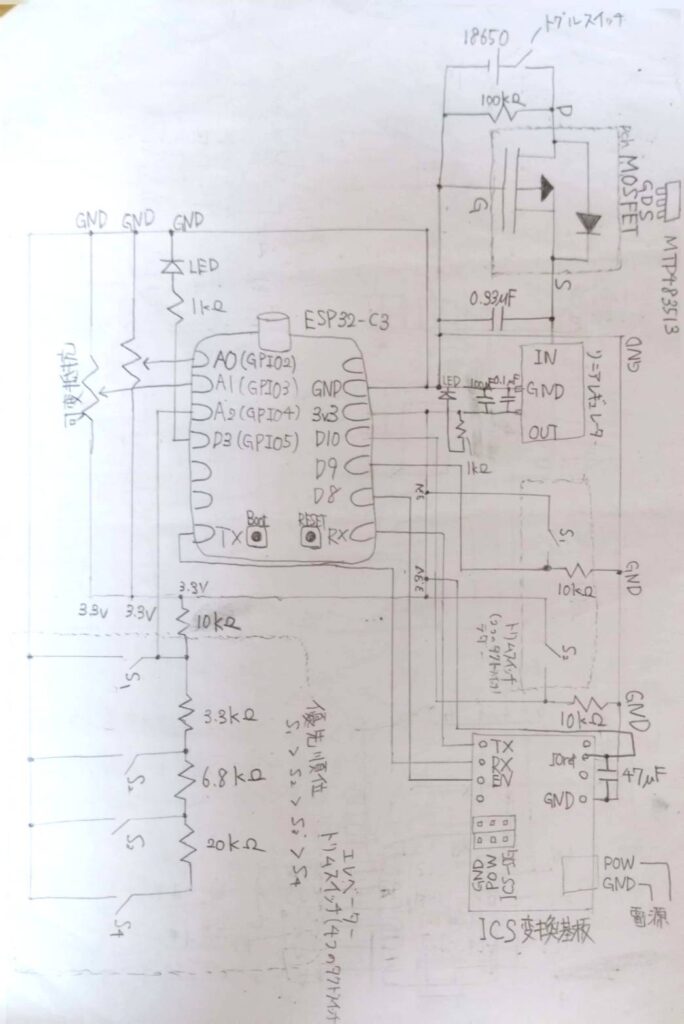 トグルスイッチ
18650
100kΩ
D
Pch MOSFET
GDS
MTP4835I3
G
S
0.33μF
GND
GND
GND
GND
LED
1kΩ
ESP32-C3
可変抵抗
A0(GPIO2)
A1(GPIO3)
A2(GPIO4)
D3(GPIO5)
TX
Boot
RESET
GND
3v3
D10
D9
D8
RX
IN
GND
OUT
リニアレギュレータ
LED
0.1μ
1kΩ
S1
10kΩ
GND
S2
10kΩ
GND
3.3V
3.3V
3.3V
10kΩ
3.3kΩ
6.8kΩ
20kΩ
S1
S2
S3
S4
優先順位
エレベーター
トリムスイッチ(4つのタクトスイッチ
TX
RX
GND
47μF
GND
POW
ICS
POW
GND
電源
ICS変換基板